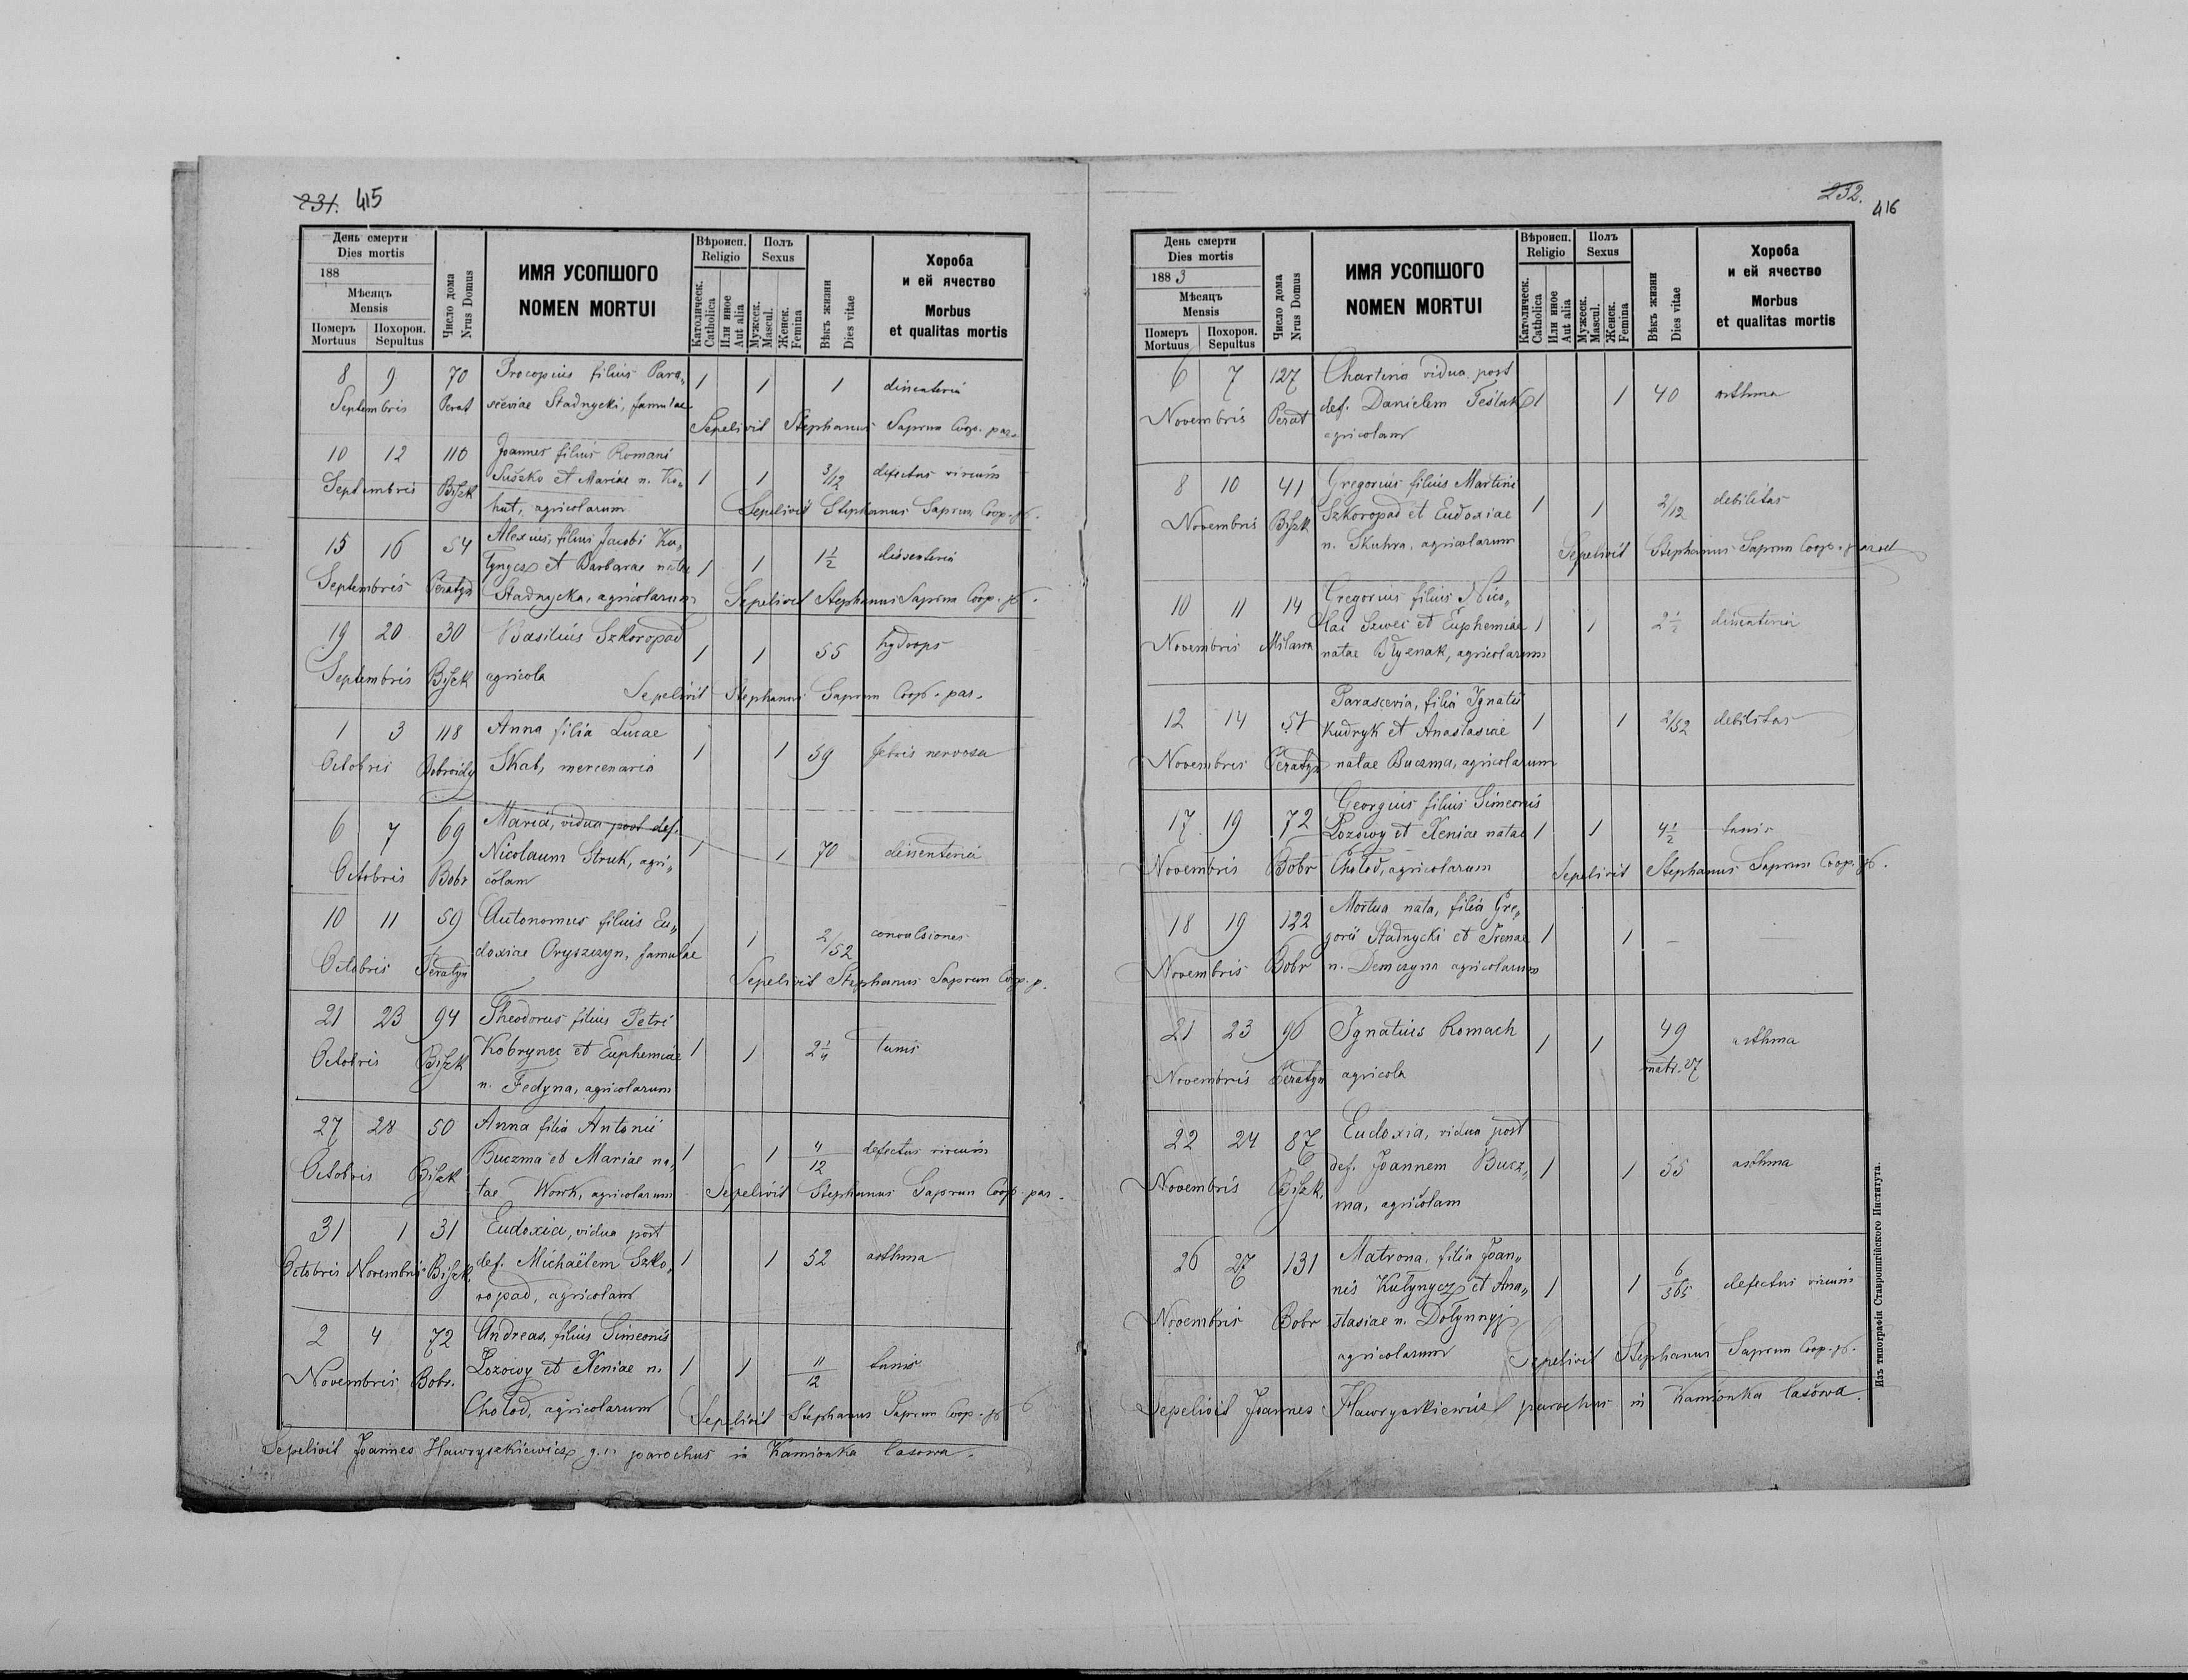 231. 415
День смерти
Dies mortis
188
Мѣсяцъ
Mensis
Померъ
Mortuus
Похорон.
Sepultus
Число дома
Nrus Domus
ИМЯ УСОПШОГО
NOMEN MORTUI
Вѣроисп.
Religio
Католическ.
Catholica
Или иное
Aut alia
Полъ
Sexus
Мужеск.
Mascul.
Женск.
Femina
Вѣкъ жизни
Dies vitae
Хороба
и ей ячество
Morbus
et qualitas mortis
8 9 70 Procopius filius Para„
Septembris Perat sceviae Stadnycki, famulae 1 1 1 dissenteria
Sepelivit Stephanus Saprun Coop. par.
10 12 110 Joannes filius Romani
Septembris Biszk Suszko et Mariae n. Ko„ 1 1 3/12 defectus virium
hut, agricolarum Sepelivit Stephanus Saprun Coop. p.
15 16 54 Alexius, filius Jacobi Ku„
tynycz et Barbarae natae 1 1 1 1/2 dissenteria
Septembris Peratyn Stadnycka, agricolarum Sepelivit Stephanus Saprun Coop. p.
19 20 30 Basilius Szkoropad 1 1 55 hydrops
Septembris Biszk agricola
Sepelivit Stephanus Saprun Coop. par.
1 3 118 Anna filia Lucae
Octobris Skab, mercenaria 1 1 59 febris nervosa
6 7 69 Maria, vidua post def.
Nicolaum Struk, agri„ 1 1 70 dissenteria
Octobris Bobr colam
10 11 59 Autonomus filius Eu„
doxiae Oryszczyn, famulae 1 1 2/52 convulsiones
Octobris Peratyn
Sepelivit Stephanus Saprun Coop. p.
21 23 94 Theodorus filius Petri
Octobris Biszk Kobrynec et Euphemiae 1 1 2 1/4 tussis
n. Fedyna, agricolarum
27 28 50 Anna filia Antonii
Buczma et Mariae na„ 1 1 4/12 defectus virium
Octobris Biszk tae Work, agricolarum Sepelivit Stephanus Saprun Coop. par.
31 1 31 Eudoxia, vidua post
Octobris Novembris Biszk. def. Michaëlem Szko„ 1 1 52 asthma
ropad, agricolam
2 4 72 Andreas, filius Simeonis
Novembris Bobr. Lozowy et Xeniae n. 1 1 11/12 tussis
Chołod, agricolarum Sepelivit Stephanus Saprun Coop. p.
Sepelivit Joannes Hawryszkiewicz parochus in Kamionka lasowa.
232. 416
День смерти
Dies mortis
1883
Мѣсяцъ
Mensis
Померъ
Mortuus
Похорон.
Sepultus
Число дома
Nrus Domus
ИМЯ УСОПШОГО
NOMEN MORTUI
Вѣроисп.
Religio
Католическ.
Catholica
Или иное
Aut alia
Полъ
Sexus
Мужеск.
Mascul.
Женск.
Femina
Вѣкъ жизни
Dies vitae
Хороба
и ей ячество
Morbus
et qualitas mortis
6 7 127 Charitina vidua post
Novembris Perat def. Danielem Teślak 1 1 40 asthma
agricolam
8 10 41 Gregorius filius Martini
Novembris Biszk Szkoropad et Eudoxiae 1 1 2/12 debilitas
n. Skuhra, agricolarum Sepelivit Stephanus Saprun Coop. paroch
10 11 14 Gregorius filius Nico„
lai Szwec et Euphemiae 1 1 2 1/2 dissenteria
Novembris Milawa natae Błyznak, agricolarum
Parascevia, filia Ignatii
12 14 51 Kudryk et Anastasiae 1 1 2/52 debilitas
Novembris Peratyn natae Buczma, agricolarum
Georgius filius Simeonis
17 19 72 Lozowy et Xeniae natae 1 1 4 1/2 tussis
Novembris Bobr Chołod, agricolarum Sepelivit Stephanus Saprun Coop. p.
Mortua nata, filia Gre„
18 19 122 gorii Stadnycki et Irenae 1 1 —
Novembris Bobr n. Demczyna agricolarum
21 23 96 Ignatius Romach 1 1 49 asthma
Novembris Peratyn agricola matr. 27
22 24 87 Eudoxia, vidua post
def. Joannem Bucz„ 1 1 55 asthma
Novembris Biszk. ma, agricolam
26 27 131 Matrona, filia Joan„
nis Kutynycz et Ana„ 1 1 6/365 defectus virium
Novembris Bobr stasiae n. Dołynnyj
agricolarum Sepelivit Stephanus Saprun Coop. p.
Sepelivit Joannes Hawryszkiewicz parochus in Kamionka lasowa.
Изъ типографіи Ставропигійского Института.